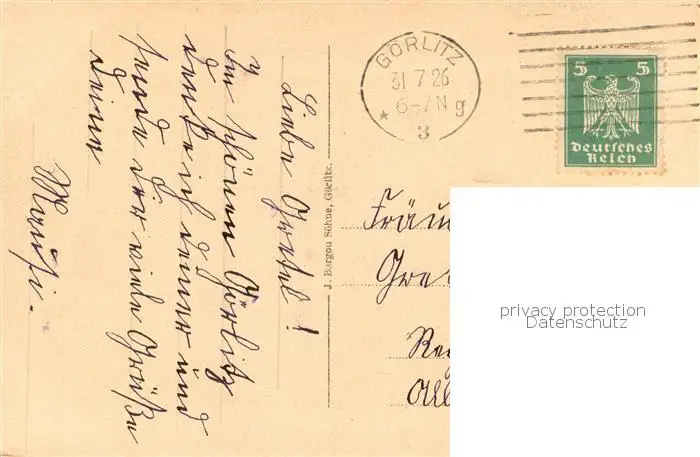 Liebe Gretel!
Im schönen Görlitz
denke ich deiner und
sende dir viele Grüße
deine
J. Bargou Söhne, Görlitz.
GÖRLITZ
31 7 26
* 6-7N g
3
5 5
Deutsches
Reich
Fräu
Gre
privacy protection
Datenschutz